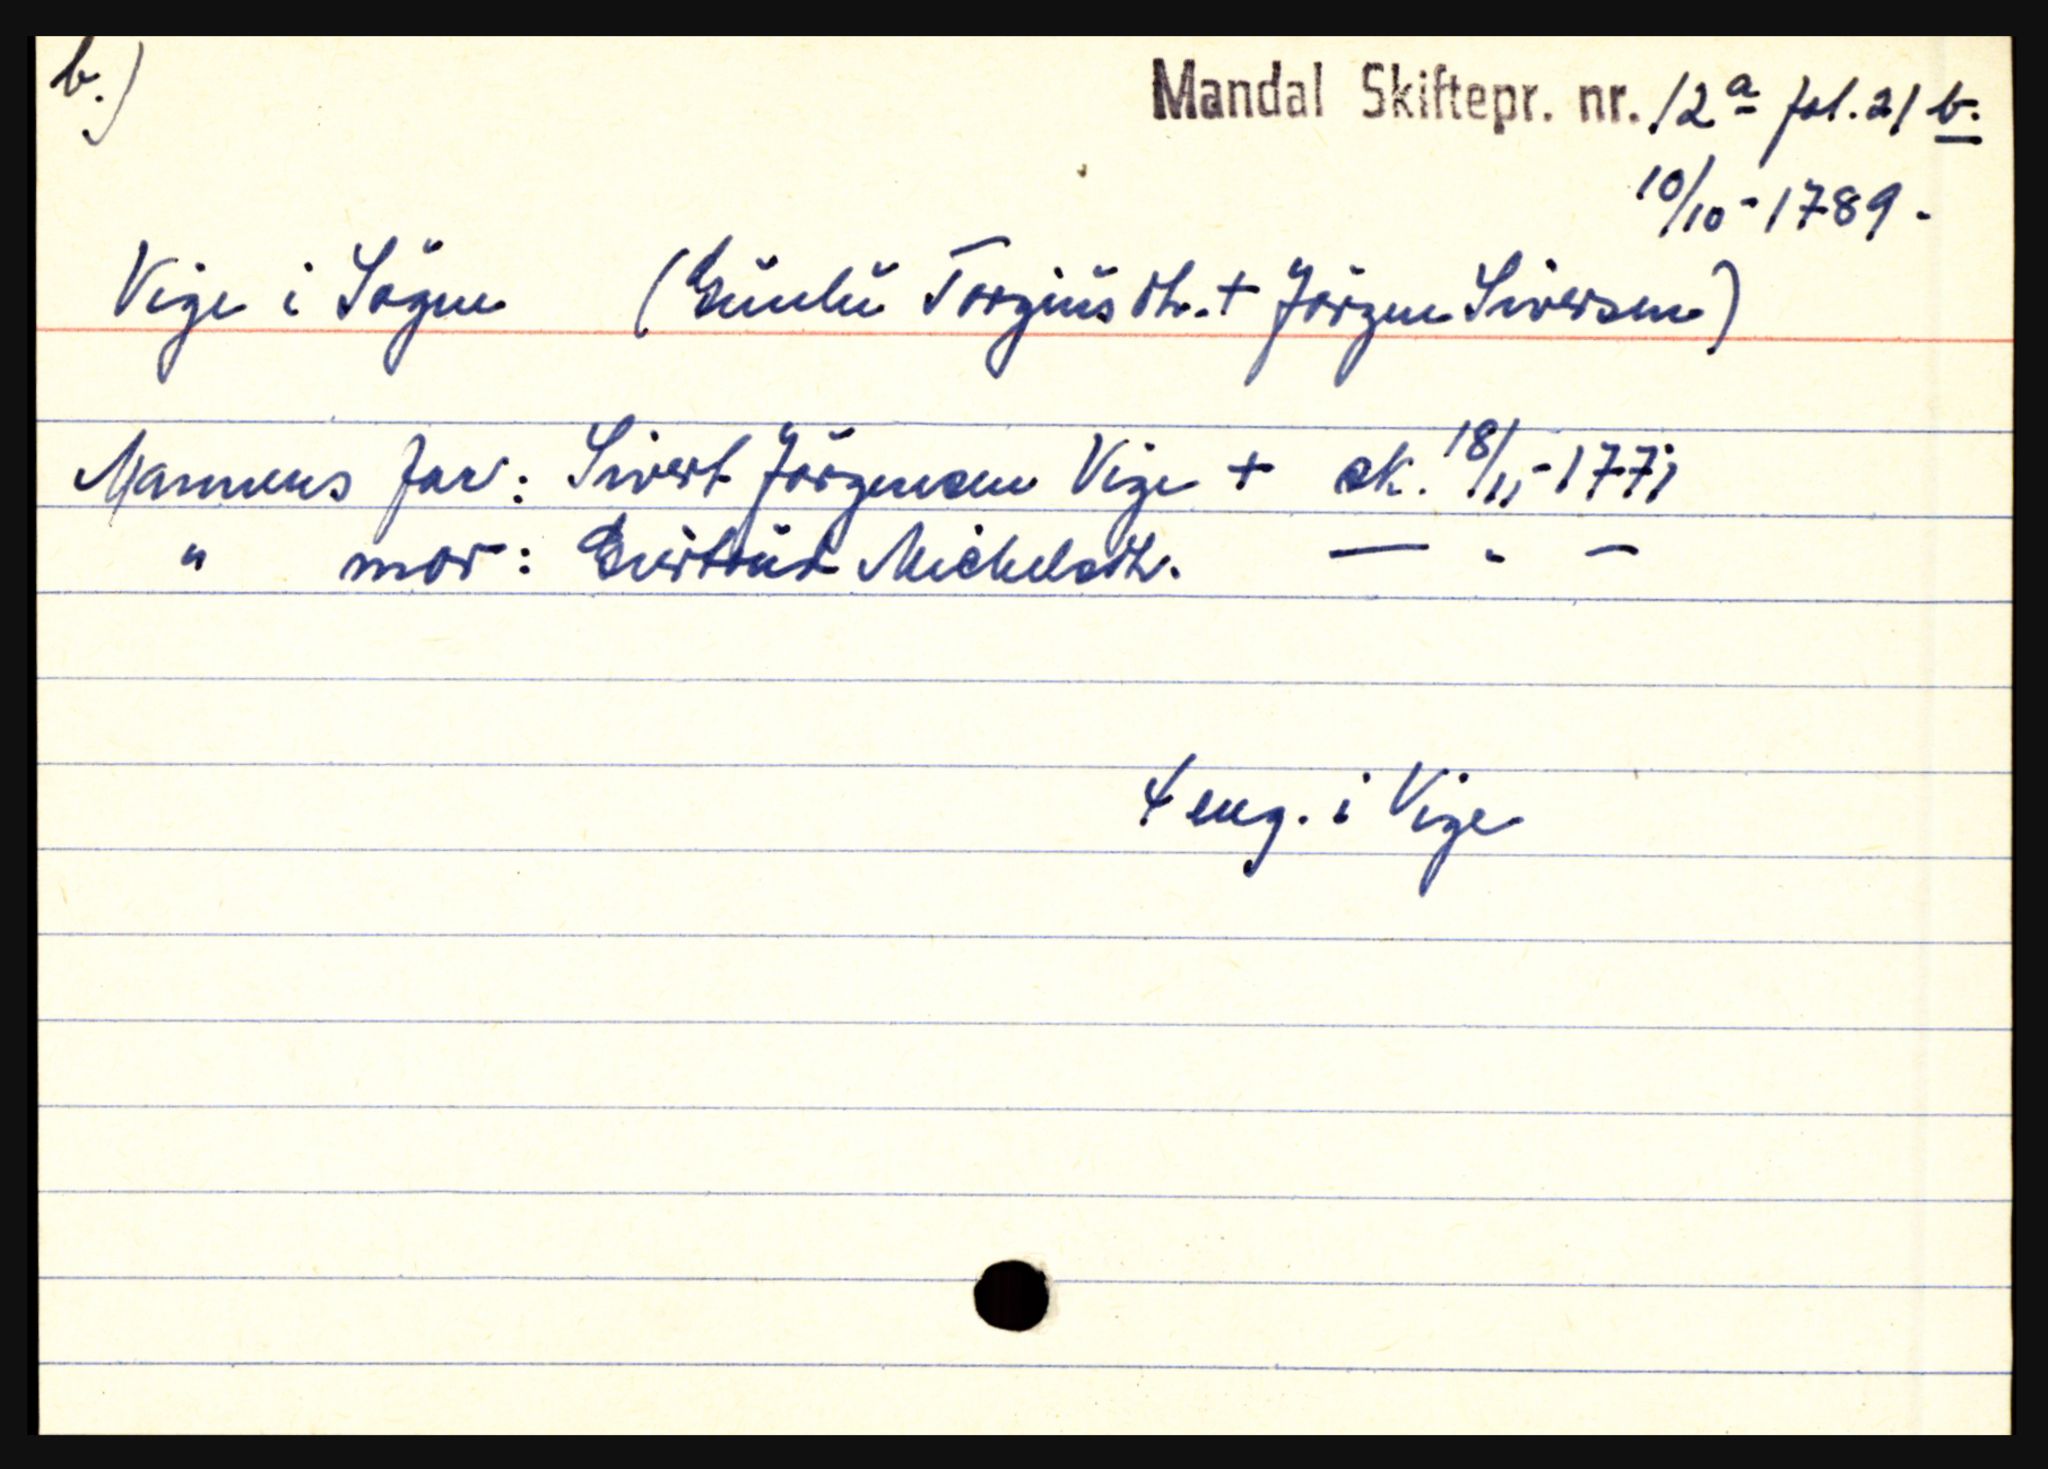 b.)
Mandal Skiftepr. nr. 12a fol. 21 b.
10/10-1789.
Vige i Søgne (Gunlu Torgiusdtr. + Jörgen Siversen)
Mannens far: Sivert Jörgensen Vige + sk. 18/11-1771
" mor: Giertrud Michelsdtr. — " —
4 eng. i Vige